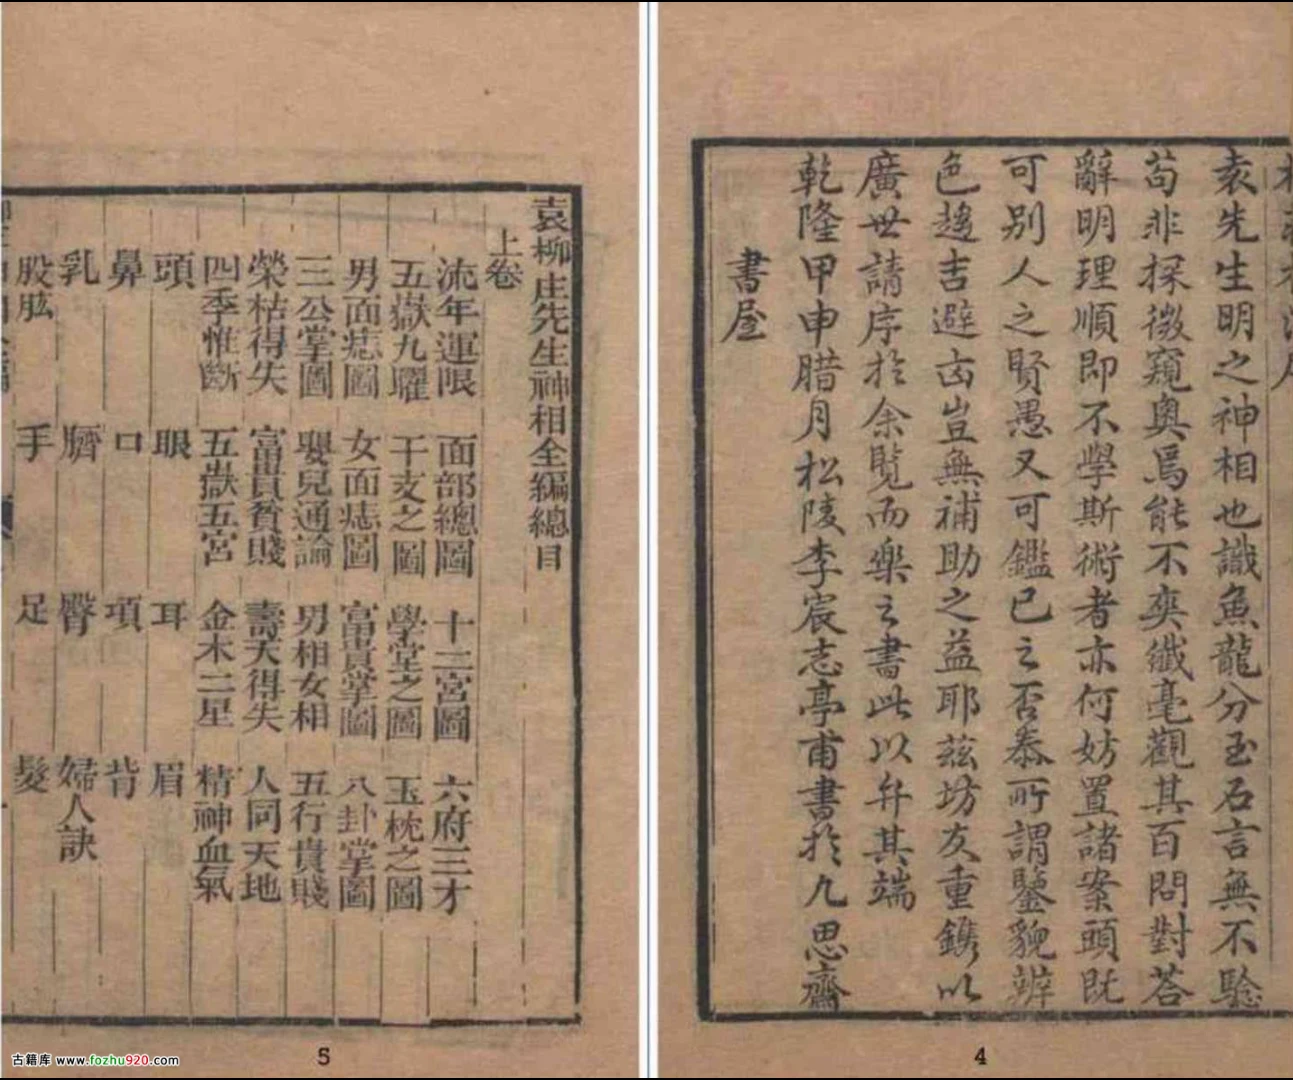 袁先生明之神相也識魚龍分玉石言無不驗
苟非探微窺奧焉能不爽纖毫觀其百問對荅
辭明理順即不學斯術者亦何妨置諸案頭既
可别人之賢愚又可鑑已之否泰所謂鑒貌辨
色趨吉避凶豈無補助之益耶茲坊友重鐫以
廣世請序於余覧而樂之書此以弁其端
乾隆甲申腊月松陵李宸志亭甫書於九思齋
書屋
4
袁柳庄先生神相全編總目
上卷
流年運限 面部總圖 十二宮圖 六府三才
五嶽九曜 干支之圖 學堂之圖 玉枕之圖
男面痣圖 女面痣圖 富貴掌圖 八卦掌圖
三公掌圖 嬰兒通論 男相女相 五行貴賤
榮枯得失 富貴貧賤 壽夭得失 人同天地
四季惟斷 五嶽五宮 金木二星 精神血氣
頭 眼 耳 眉
鼻 口 項 背
乳 臍 臀 婦人訣
股肱 手 足 髮
5
古籍库 www.fozhu920.com